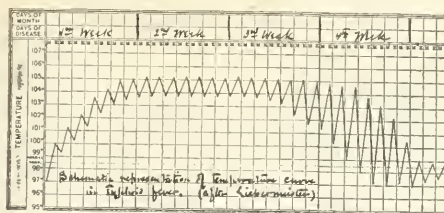 DAYS OF MONTH
DAYS OF DISEASE 1st Week 2nd Week 3rd Week 4th Week
107°
106
105
104°
103°
102°
101°
100°
99°
98°
97°
96°
95°
TEMPERATURE
Schematic representation of temperature curve
in typhoid fever. (after Liebermeister)